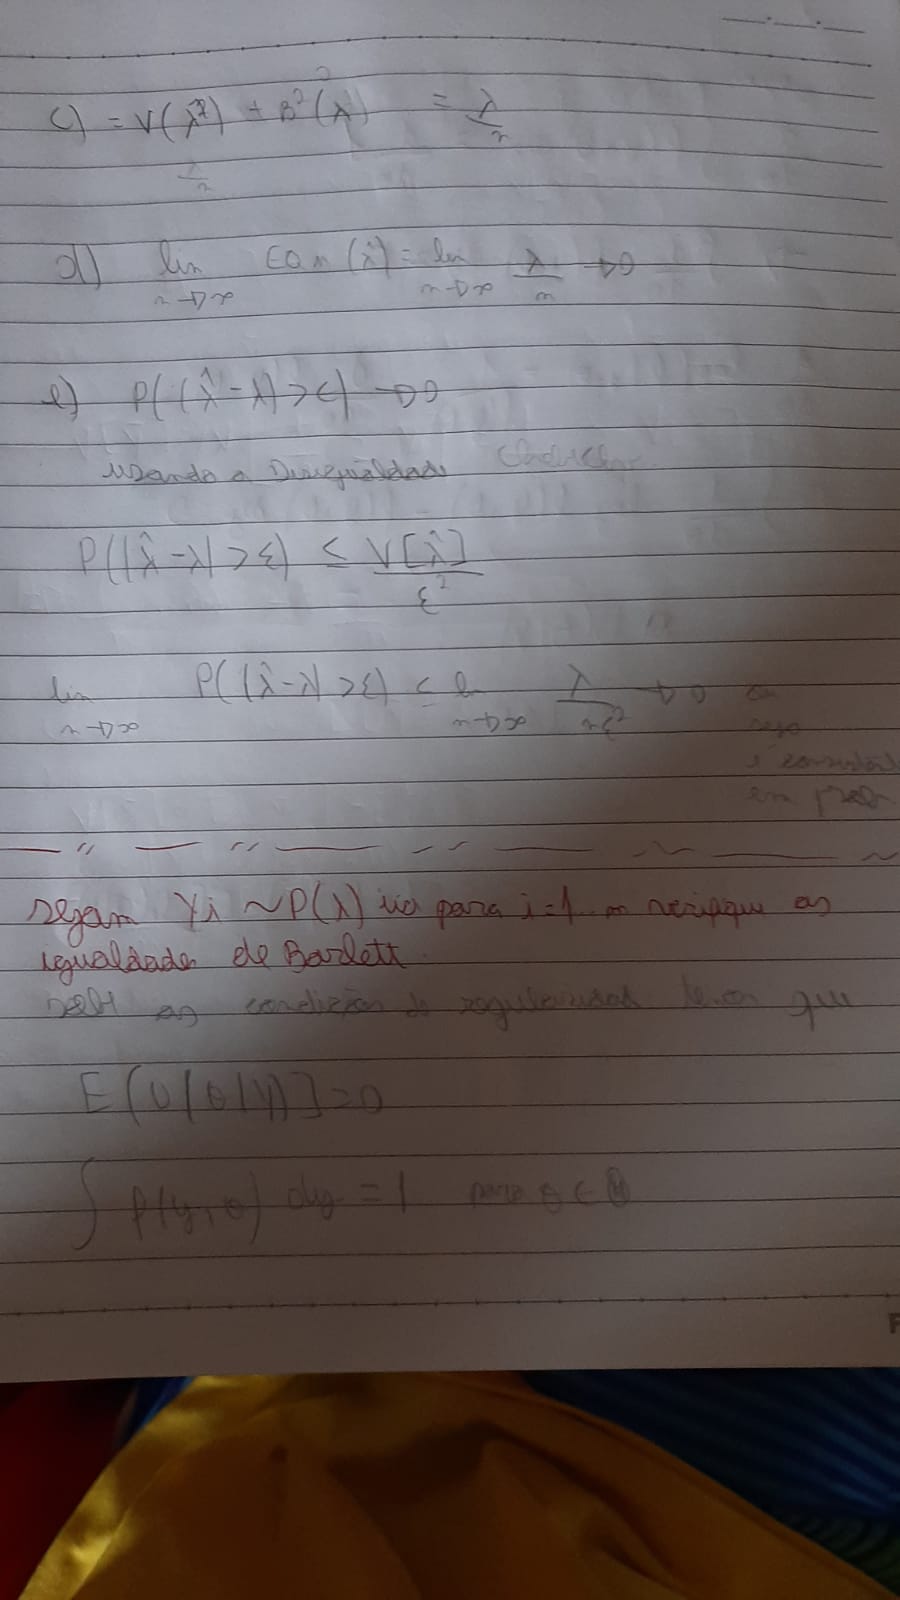 c) = V(λ̂) + B²(λ̂) = λ/n
λ/n
d) lim n→∞ EQM(λ̂) = lim n→∞ λ/n → 0
e) P(|λ̂ - λ| > ε) → 0
usando a Desigualdade
P(|λ̂ - λ| > ε) ≤ V[λ̂]/ε²
lim n→∞ P(|λ̂ - λ| > ε) ≤ lim n→∞ λ/nε² → 0
em prob
sejam Yi ~ P(λ) iid para i=1...n verifique as
igualdades de Barlett.
as condições de regularidade temos que
E[U(θ|Y)] = 0
∫ P(y, θ) dy = 1 para θ ∈ Θ